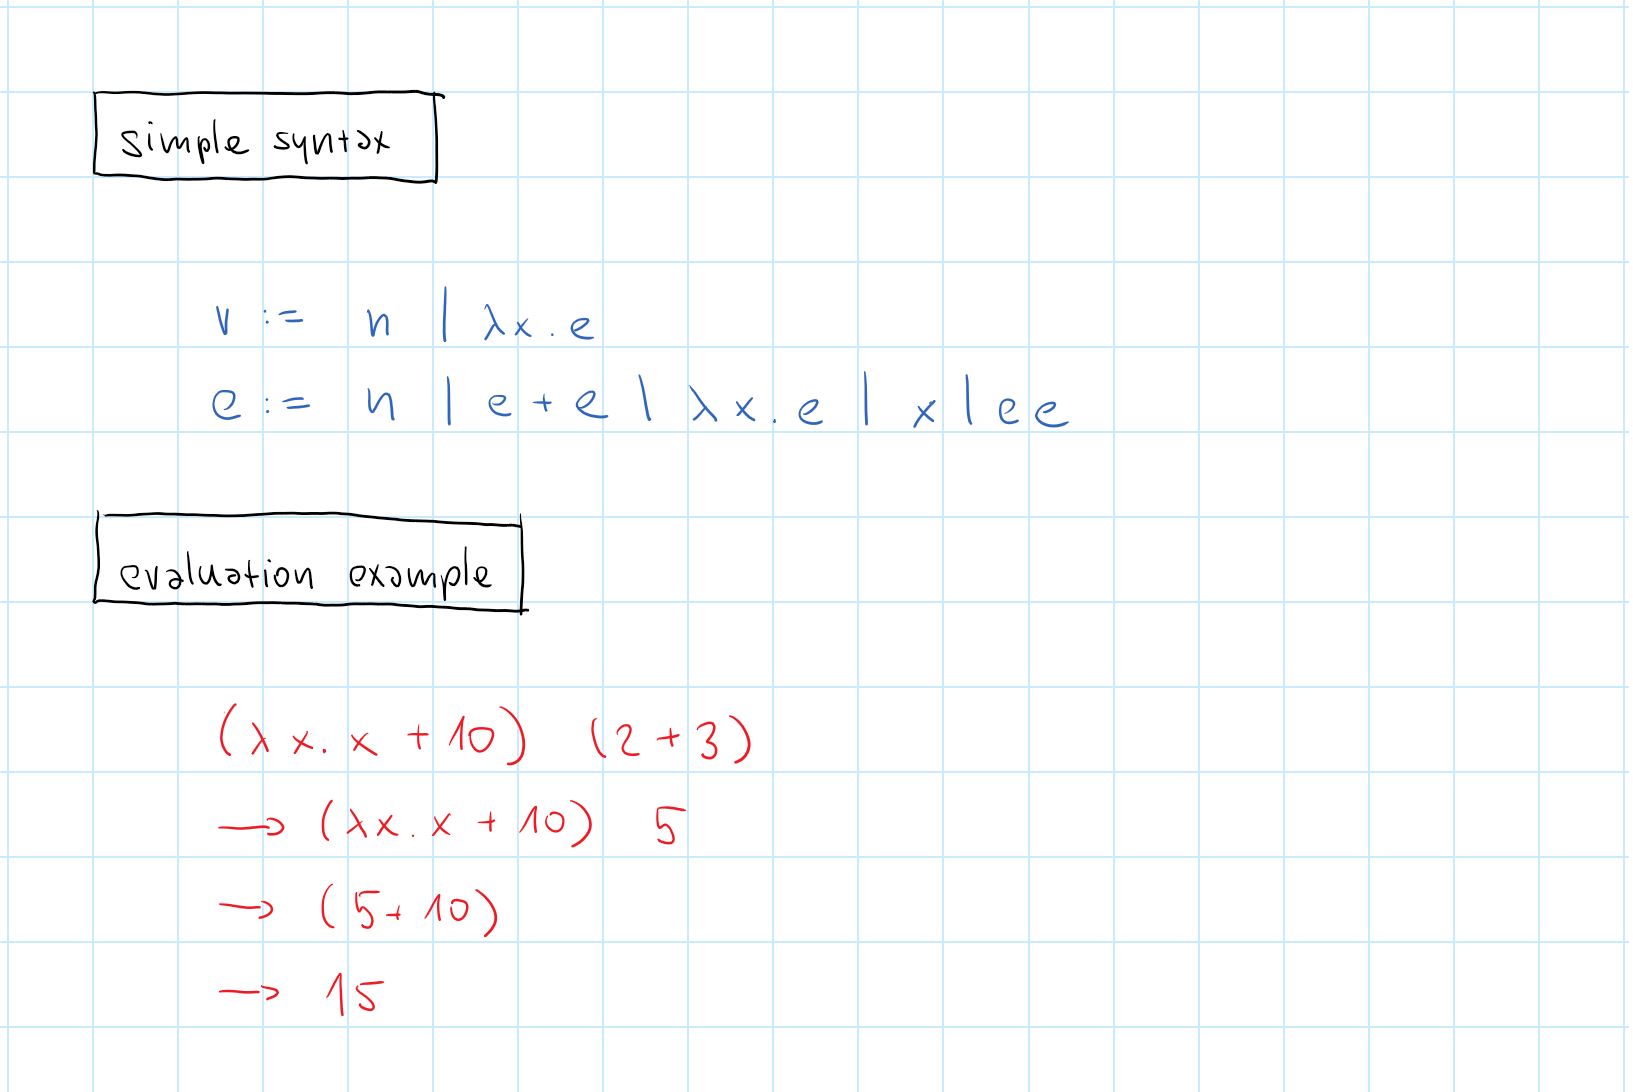 simple syntax
v := n | λx.e
e := n | e + e | λx.e | x | e e
evaluation example
(λx. x + 10) (2 + 3)
→ (λx. x + 10) 5
→ (5 + 10)
→ 15